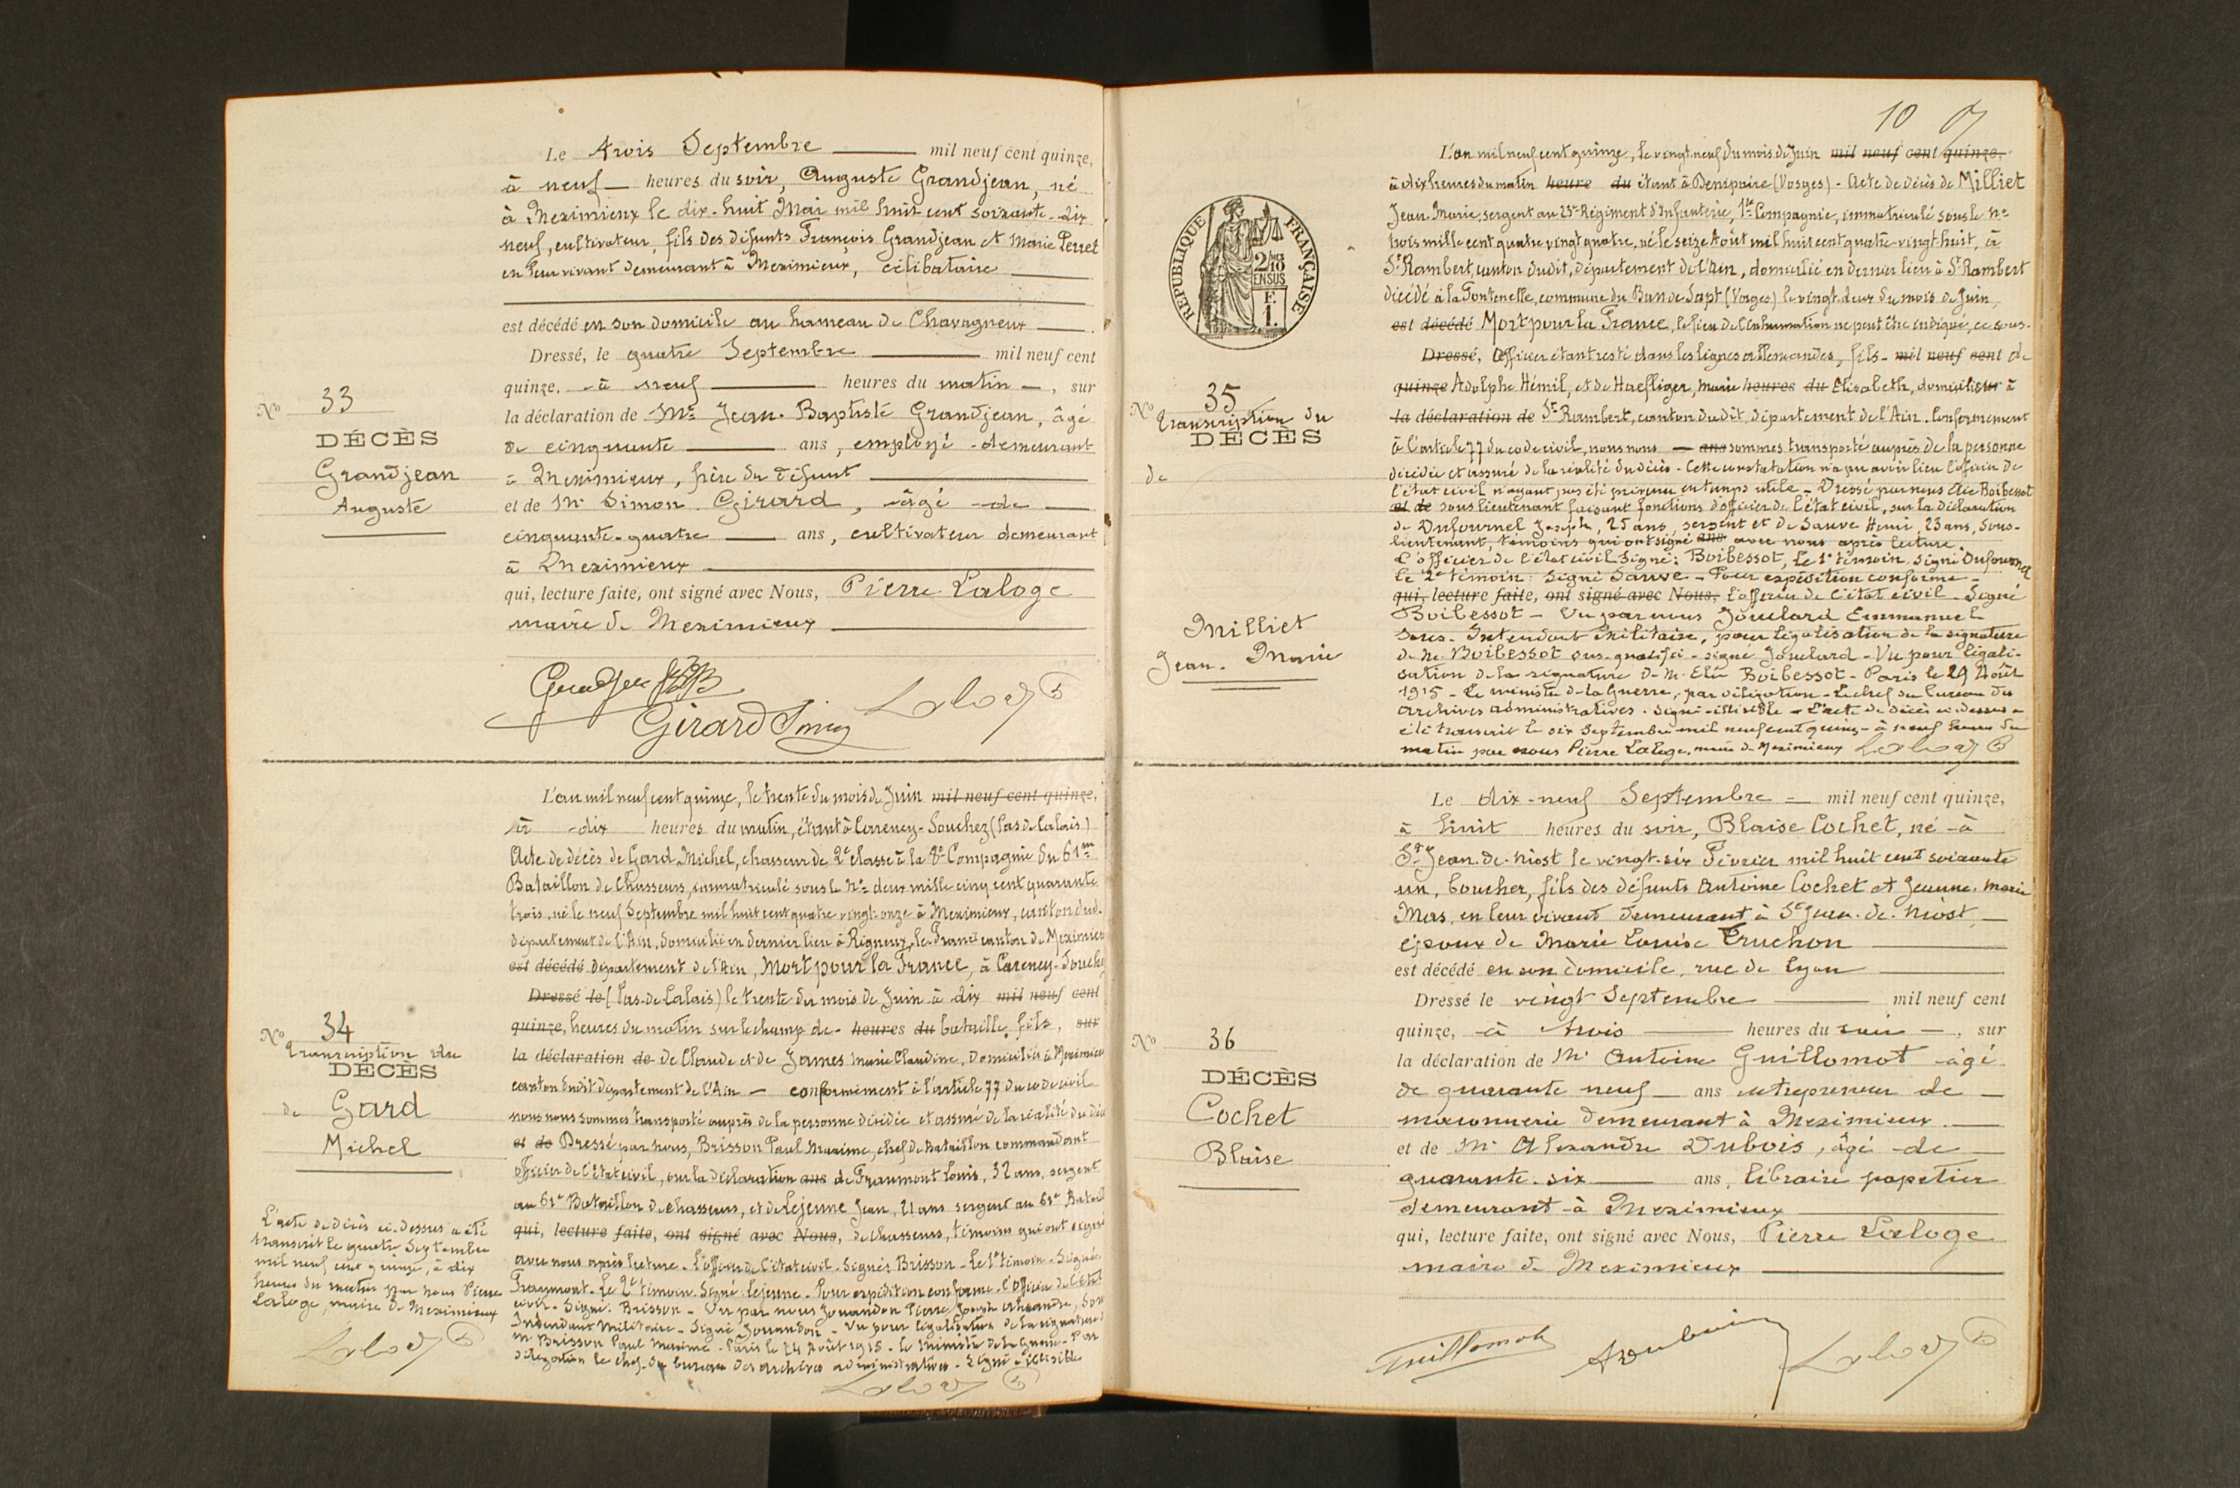 Le trois Septembre mil neuf cent quinze,
à neuf heures du soir, Auguste Grandjean, né
à Meximieux le dix-huit Mai mil huit cent soixante-dix
neuf, cultivateur, fils des défunts François Grandjean et Marie Perret
en leur vivant demeurant à Meximieux, célibataire
est décédé en son domicile au hameau de Chavagneux
Dressé, le quatre Septembre mil neuf cent
quinze, à neuf heures du matin, sur
la déclaration de Mr Jean-Baptiste Grandjean, âgé
de cinquante ans, employé demeurant
à Meximieux, frère du défunt
et de Mr Simon Girard, âgé de
cinquante-quatre ans, cultivateur demeurant
à Meximieux
qui, lecture faite, ont signé avec Nous, Pierre Laloge
maire de Meximieux
No 33
DÉCÈS
Grandjean
Auguste
Girard Simon Laloge
L'an mil neuf cent quinze, le trente du mois de Juin mil neuf cent quinze,
à dix heures du matin, étant à Carency-Souchez (Pas de Calais)
Acte de décès de Gard Michel, chasseur de 2e classe à la 8e Compagnie du 61me
Bataillon de Chasseurs, immatriculé sous le No deux mille cinq cent quarante
trois, né le neuf Septembre mil huit cent quatre vingt-onze à Meximieux, canton dud.
département de l'Ain, domicilié en dernier lieu à Rigneux-le-Franc canton de Meximieux
est décédé département de l'Ain, Mort pour la France, à Carency-Souchez
Dressé le (Pas-de-Calais) le trente du mois de Juin à dix mil neuf cent
quinze, heures du matin sur le champ de heures du bataille, fils, sur
la déclaration de de Claude et de James Marie Claudine, domiciliés à Meximieux
canton dudit département de l'Ain - conformément à l'article 77 du code civil
nous nous sommes transporté auprès de la personne décédée et assuré de la réalité du décès
et de Dressé par nous, Brisson Paul Maxime, chef de bataillon commandant
officier de l'état civil, sur la déclaration ans de Fraumont Louis, 32 ans, sergent
au 61e Bataillon de chasseurs, et de Lejeune Jean, 21 ans sergent au 61e Bataill
qui, lecture faite, ont signé avec Nous, de chasseurs, témoins qui ont signé
avec nous après lecture. L'officier de l'état civil. Signé: Brisson - Le 1er témoin - Signé:
Fraumont - Le 2e témoin. Signé: Lejeune - Pour expédition conforme - l'Officier de l'état
civil - Signé: Brisson - Vu par nous Jouandon Pierre Joseph Alexandre, Sous
Intendant Militaire - Signé Jouandon - Vu pour légalisation de la signature de
M Brisson Paul Maxime - Paris le 24 Août 1915 - le Ministre de la Guerre - Par
délégation le chef du bureau des archives administratives - Signé illisible
Laloge
No 34
Transcription du
DÉCÈS
de Gard
Michel
L'acte de décès ci-dessus a été
transcrit le quatre Septembre
mil neuf cent quinze, à dix
heures du matin par nous Pierre
Laloge, maire de Meximieux
Laloge
10
RÉPUBLIQUE FRANÇAISE
2/10
EN SUS
F.
1.
L'an mil neuf cent quinze, le vingt-neuf du mois de Juin mil neuf cent quinze.
à dix heures du matin heure du étant à Denipaire (Vosges) - Acte de décès de Milliet
Jean Marie, sergent au 23e Régiment d'Infanterie, 1re Compagnie, immatriculé sous le no
trois mille cent quatre vingt quatre, né le seize Août mil huit cent quatre-vingt-huit, à
St Rambert, canton dudit, département de l'Ain, domicilié en dernier lieu à St Rambert
décédé à la Fontenelle, commune du Ban de Sapt (Vosges) le vingt-deux du mois de Juin,
est décédé Mort pour la France, le lieu de l'inhumation ne peut être indiqué, ce sous-
Dressé, Officier étant resté dans les lignes allemandes, fils - mil neuf cent de
quinze Adolphe Hémil, et de Haefliger, Marie heures du Elisabeth, domiciliés sur à
la déclaration de St Rambert, canton dudit département de l'Ain. Conformément
à l'article 77 du code civil, nous nous ans sommes transporté auprès de la personne
décédée et assuré de la réalité du décès - Cette constatation n'a pu avoir lieu l'officier de
l'état civil n'ayant pas été prévenu en temps utile - Dressé par nous Elie Boibessot
et de sous lieutenant faisant fonctions d'officier de l'état civil, sur la déclaration
de Dufournel Joseph, 25 ans, sergent et de Sauve Henri, 23 ans, sous-
lieutenant, témoins qui ont signé ans avec nous après lecture.
L'officier de l'état civil Signé: Boibessot, Le 1er témoin signé Dufournel
le 2e témoin: Signé Sauve - Pour expédition conforme -
qui, lecture faite, ont signé avec Nous, L'officier de l'état civil - Signé
Boibessot - Vu par nous Jouclard Emmanuel
Sous-Intendant Militaire, pour légalisation de la signature
de M. Boibessot sus-qualifié - signé Jouclard - Vu pour légali-
sation de la signature de M. Elie Boibessot - Paris le 29 Août
1915 - Le ministre de la Guerre, par délégation - Le chef du bureau des
archives administratives. Signé - illisible - L'acte de décès ci-dessus a
été transcrit le six Septembre mil neuf cent quinze à neuf heures du
matin par nous Pierre Laloge, maire de Meximieux Laloge
No 35
Transcription du
DÉCÈS
de
Milliet
Jean-Marie
Le dix-neuf Septembre mil neuf cent quinze,
à huit heures du soir, Blaise Cochet, né à
St Jean-de-Niost le vingt-six Février mil huit cent soixante
un, boucher, fils des défunts Antoine Cochet et Jeanne-Marie
Mas, en leur vivant demeurant à St Jean-de-Niost,
époux de Marie Louise Truchon
est décédé en son domicile, rue de Lyon
Dressé le vingt Septembre mil neuf cent
quinze, à trois heures du soir, sur
la déclaration de Mr Antoine Guillomot âgé
de quarante neuf ans entrepreneur de
maçonnerie demeurant à Meximieux.
et de Mr Alexandre Dubois, âgé de
quarante-six ans, libraire papetier
demeurant à Meximieux
qui, lecture faite, ont signé avec Nous, Pierre Laloge
maire de Meximieux
No 36
DÉCÈS
Cochet
Blaise
Guillomot ADubois Laloge